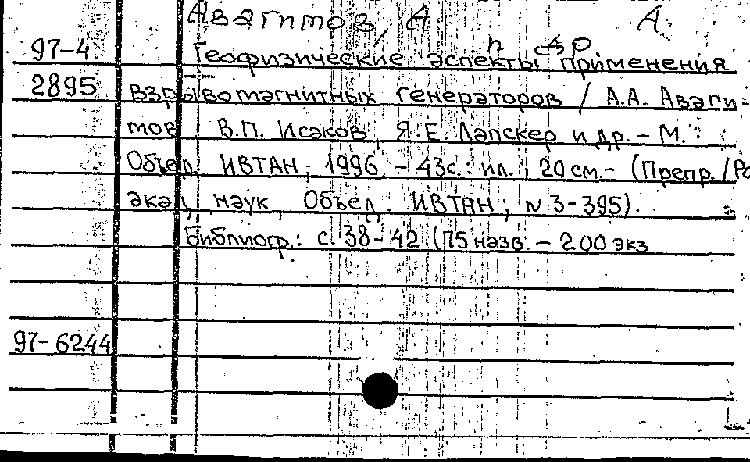 Авагимов, А. А.
и др
97-4 Геофизические аспекты применения
2895 взрывомагнитных генераторов / А.А. Аваги-
мов, В.П. Исаков, Я.Е. Лапскер и др. - М. :
Объед. ИВТАН, 1996. - 43с. : ил. ; 20 см. - (Препр. / Ро
акад. наук, Объед. ИВТАН ; N 3-395).
Библиогр.: с. 38-42 (75 назв. - 200 экз
97-6244